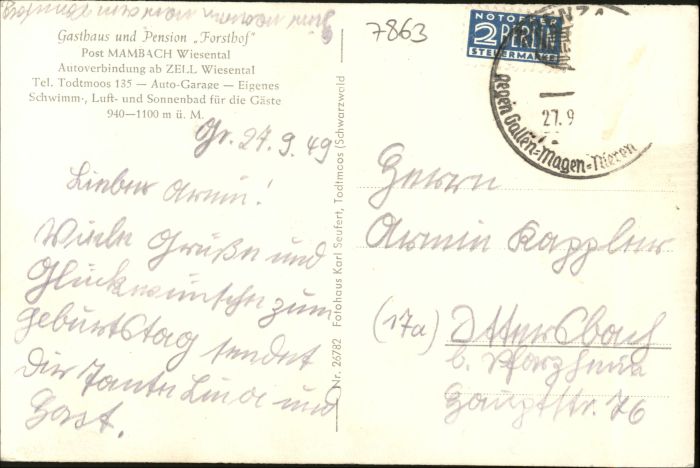 Gasthaus und Pension „Forsthof"
Post MAMBACH Wiesental
Autoverbindung ab ZELL Wiesental
Tel. Todtmoos 135 — Auto-Garage — Eigenes
Schwimm-, Luft- und Sonnenbad für die Gäste
940—1100 m ü. M.
Gr. 27.9.49
Lieber Armin!
Viele Grüße und
Glückwünsche zum
Geburtstag sendet
Dir Tante Lina und
Gast.
Nr. 26782 Fotohaus Karl Seufert, Todtmoos (Schwarzwald)
7863
NOTOPFER
2 BERLIN
STEUERMARKE
27.9
gegen Gallen=Magen=Nieren
Herrn
Armin Kappler
(17a) Ittersbach
b. Pforzheim
Hauptstr. 76